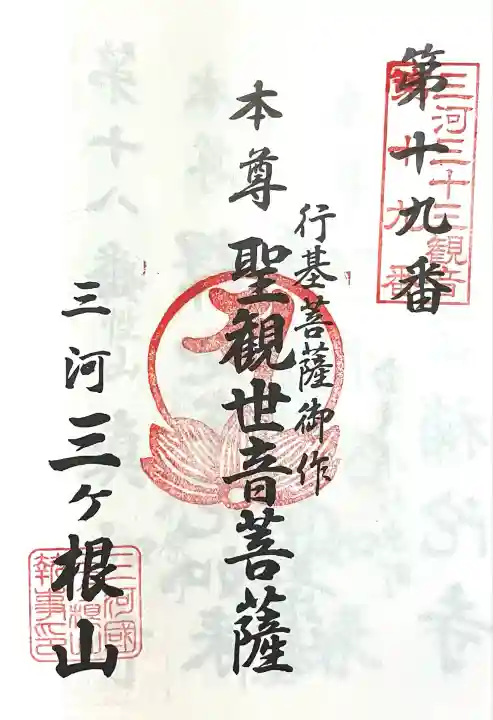 第十九番
三河三十三観音
第十九番
行基菩薩御作
本尊 聖観世音菩薩
三河 三ヶ根山
三河國
執事印